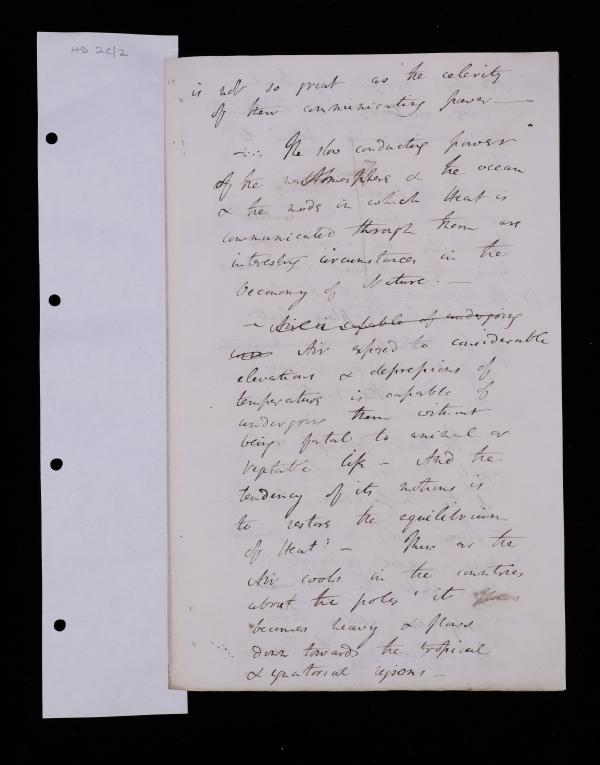 HD 2C/2
is not so great as the celerity
of their communicating power —
— The slow conducting power
of the Atmosphere & the ocean
& the mode in which Heat is
communicated through them are
interesting circumstances in the
Oeconomy of Nature. —
— Air is capable of undergoing
Air exposed to considerable
elevations & depressions of
temperature is capable of
undergoing them without
being fatal to animal or
vegetable life — And the
tendency of its motions is
to restore the equilibrium
of Heat: — Thus as the
Air cools in the countries
about the poles it
becomes heavy & flows
down towards the tropical
& equatorial regions —